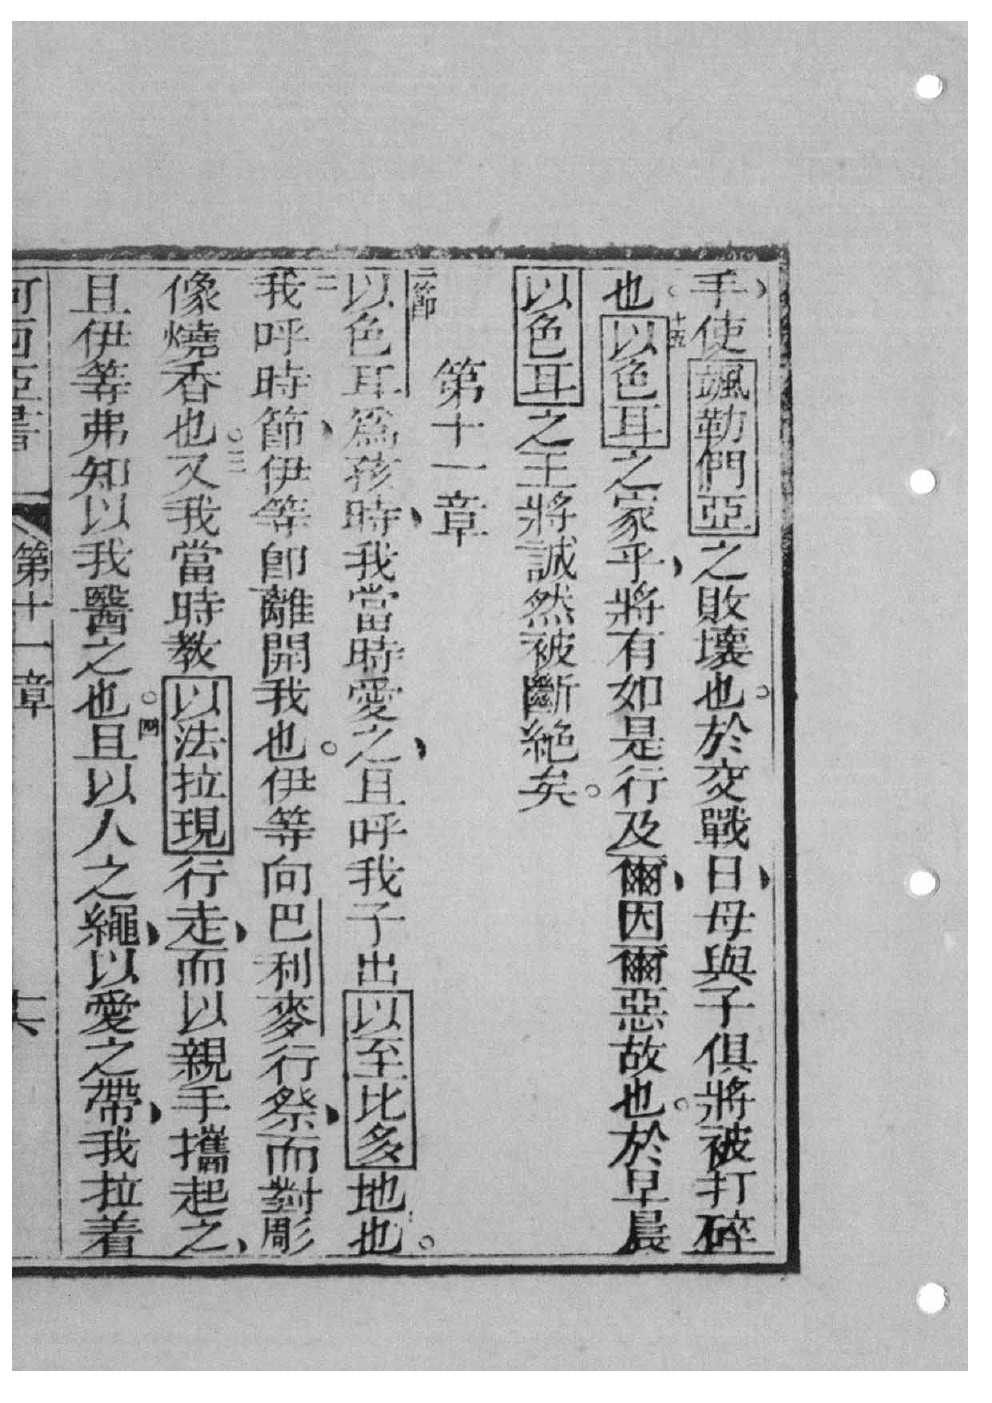 手使颯勒們亞之敗壞也。於交戰日母與子俱將被打碎
也。十五以色耳之家乎將有如是行及爾因爾惡故也。於早晨
以色耳之王將誠然被斷絕矣。
第十一章
一節以色耳爲孩時我當時愛之且呼我子出以至比多地也。
二我呼時節伊等卽離開我也。伊等向巴利麥行祭而對彫
像燒香也。三又我當時教以法拉現行走而以親手攜起之
且伊等弗知以我醫之也。四且以人之繩以愛之帶我拉着
何西亞書 第十一章 十六